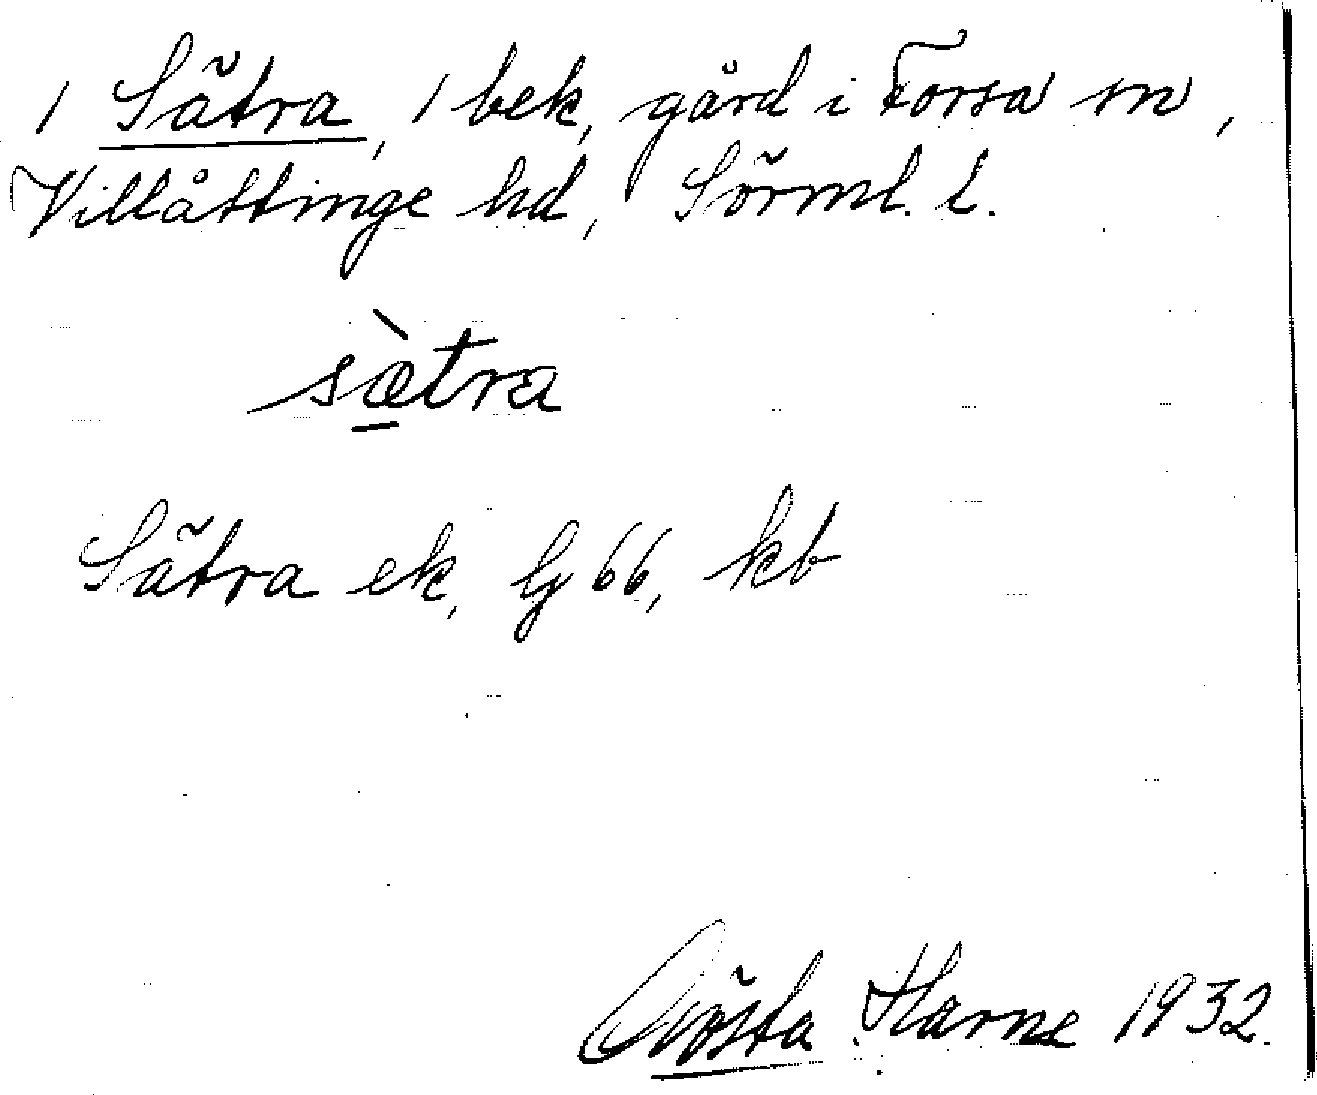 1 Sätra, 1 bek, gård i Forsa sn,
Villåttinge hd, Sörml. l.
sæ̀tra
Sätra ek, Lg 66, kb
Gösta Harne 1932.